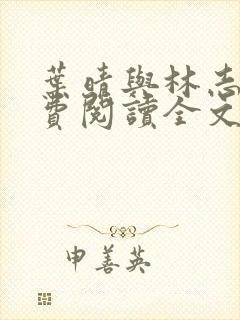 葉晴與林志
費閱讀全文
申善英